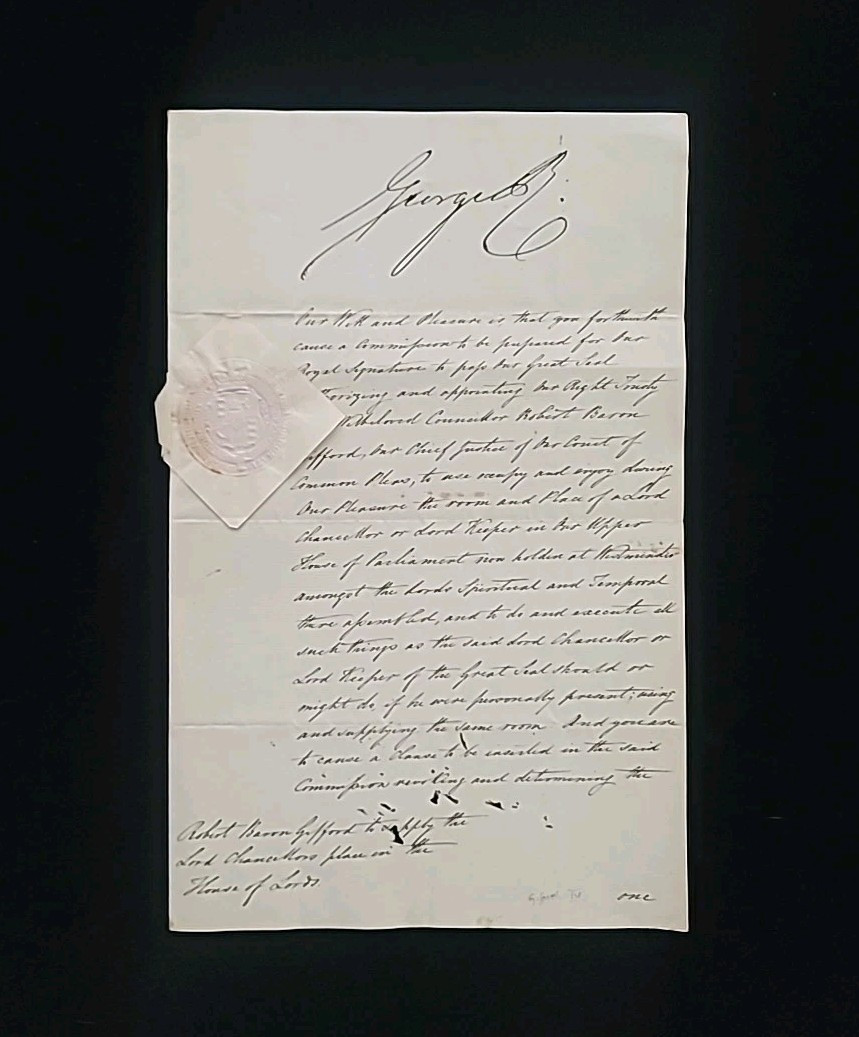 George R.
Our Will and Pleasure is, that you forthwith
cause a Commission to be prepared for Our
Royal Signature to pass Our Great Seal
orizing and appointing Our Right Trusty
Welbeloved Councillor Robert Baron
ifford, Our Chief Justice of Our Court of
Common Pleas, to use occupy and enjoy during
Our Pleasure the room and Place of a Lord
Chancellor or Lord Keeper in Our Upper
House of Parliament now holden at Westminster
amongst the Lords Spiritual and Temporal
there assembled, and to do and execute all
such things as the said Lord Chancellor or
Lord Keeper of the Great Seal should or
might do, if he were personally present; using
and supplying the same room. And you are
to cause a Clause to be inserted in the said
Commission revoking and determining the
Robert Baron Gifford to supply the
Lord Chancellors place in the
House of Lords.
one